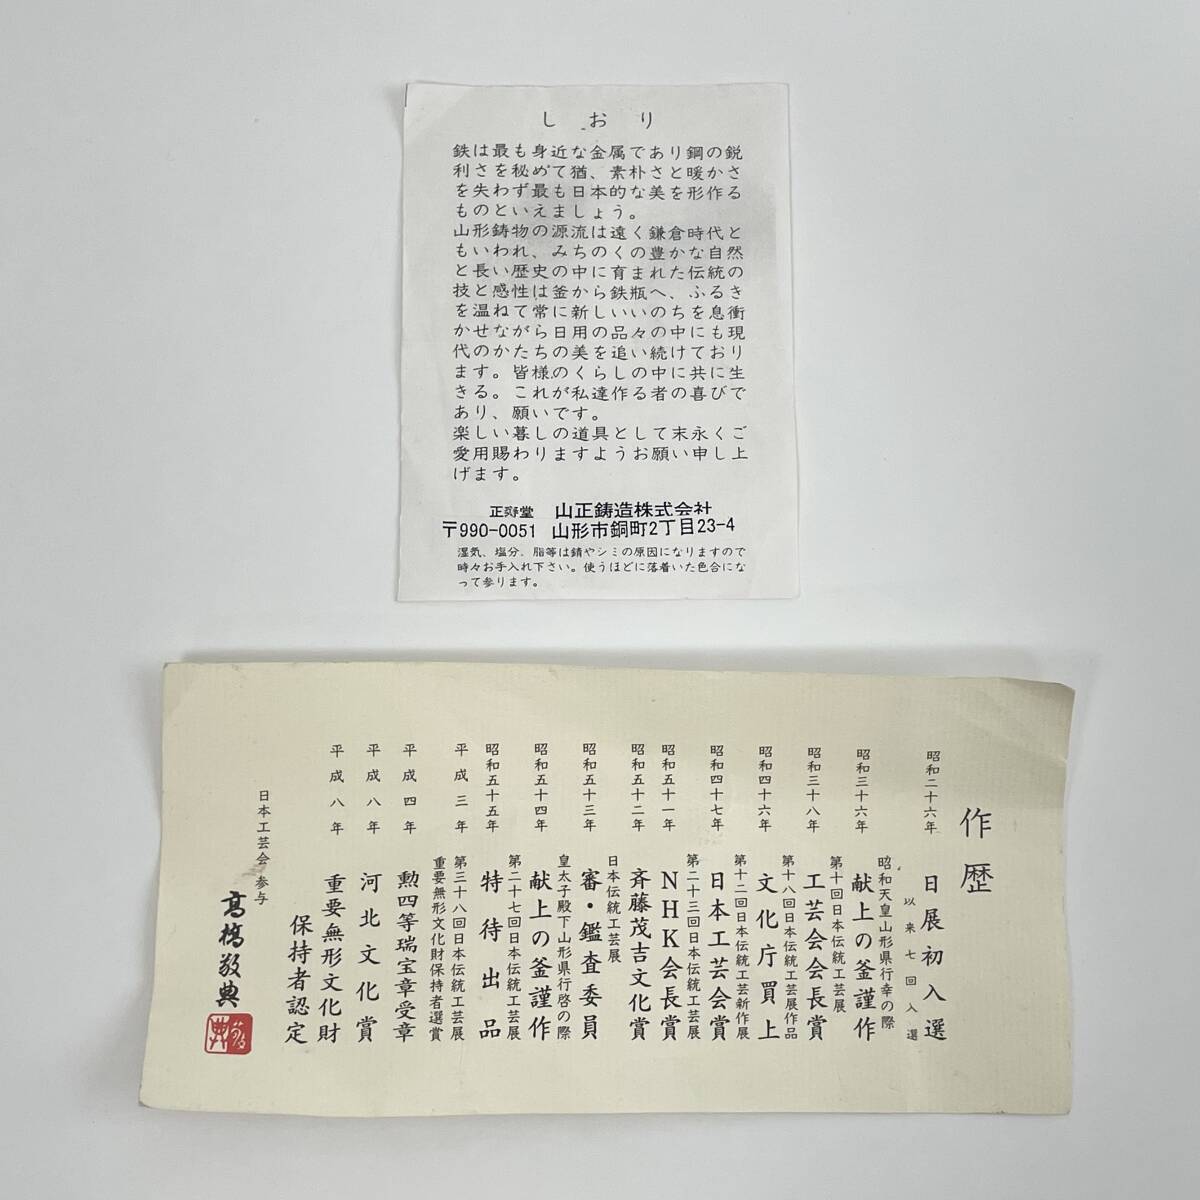 しおり
鉄は最も身近な金属であり鋼の鋭
利さを秘めて猶、素朴さと暖かさ
を失わず最も日本的な美を形作る
ものといえましょう。
山形鋳物の源流は遠く鎌倉時代と
もいわれ、みちのくの豊かな自然
と長い歴史の中に育まれた伝統の
技と感性は釜から鉄瓶へ、ふるき
を温ねて常に新しいいのちを息衝
かせながら日用の品々の中にも現
代のかたちの美を追い続けており
ます。皆様のくらしの中に共に生
きる。これが私達作る者の喜びで
あり、願いです。
楽しい暮しの道具として末永くご
愛用賜わりますようお願い申し上
げます。
正寿堂 山正鋳造株式会社
〒990-0051 山形市銅町2丁目23-4
湿気、塩分、脂等は錆やシミの原因になりますので
時々お手入れ下さい。使うほどに落着いた色合にな
って参ります。
作歴
昭和二十六年 日展初入選
以来七回入選
昭和天皇山形県行幸の際
昭和三十六年 献上の釜謹作
第十回日本伝統工芸展
昭和三十八年 工芸会会長賞
第十八回日本伝統工芸展作品
昭和四十六年 文化庁買上
第十二回日本伝統工芸新作展
昭和四十七年 日本工芸会賞
第二十三回日本伝統工芸展
昭和五十一年 NHK会長賞
昭和五十二年 斉藤茂吉文化賞
日本伝統工芸展
昭和五十三年 審・鑑査委員
皇太子殿下山形県行啓の際
昭和五十四年 献上の釜謹作
第二十七回日本伝統工芸展
昭和五十五年 特待出品
平成三年 第三十八回日本伝統工芸展
重要無形文化財保持者選賞
平成四年 勲四等瑞宝章受章
平成八年 河北文化賞
平成八年 重要無形文化財
保持者認定
日本工芸会 参与
高橋敬典
敬典